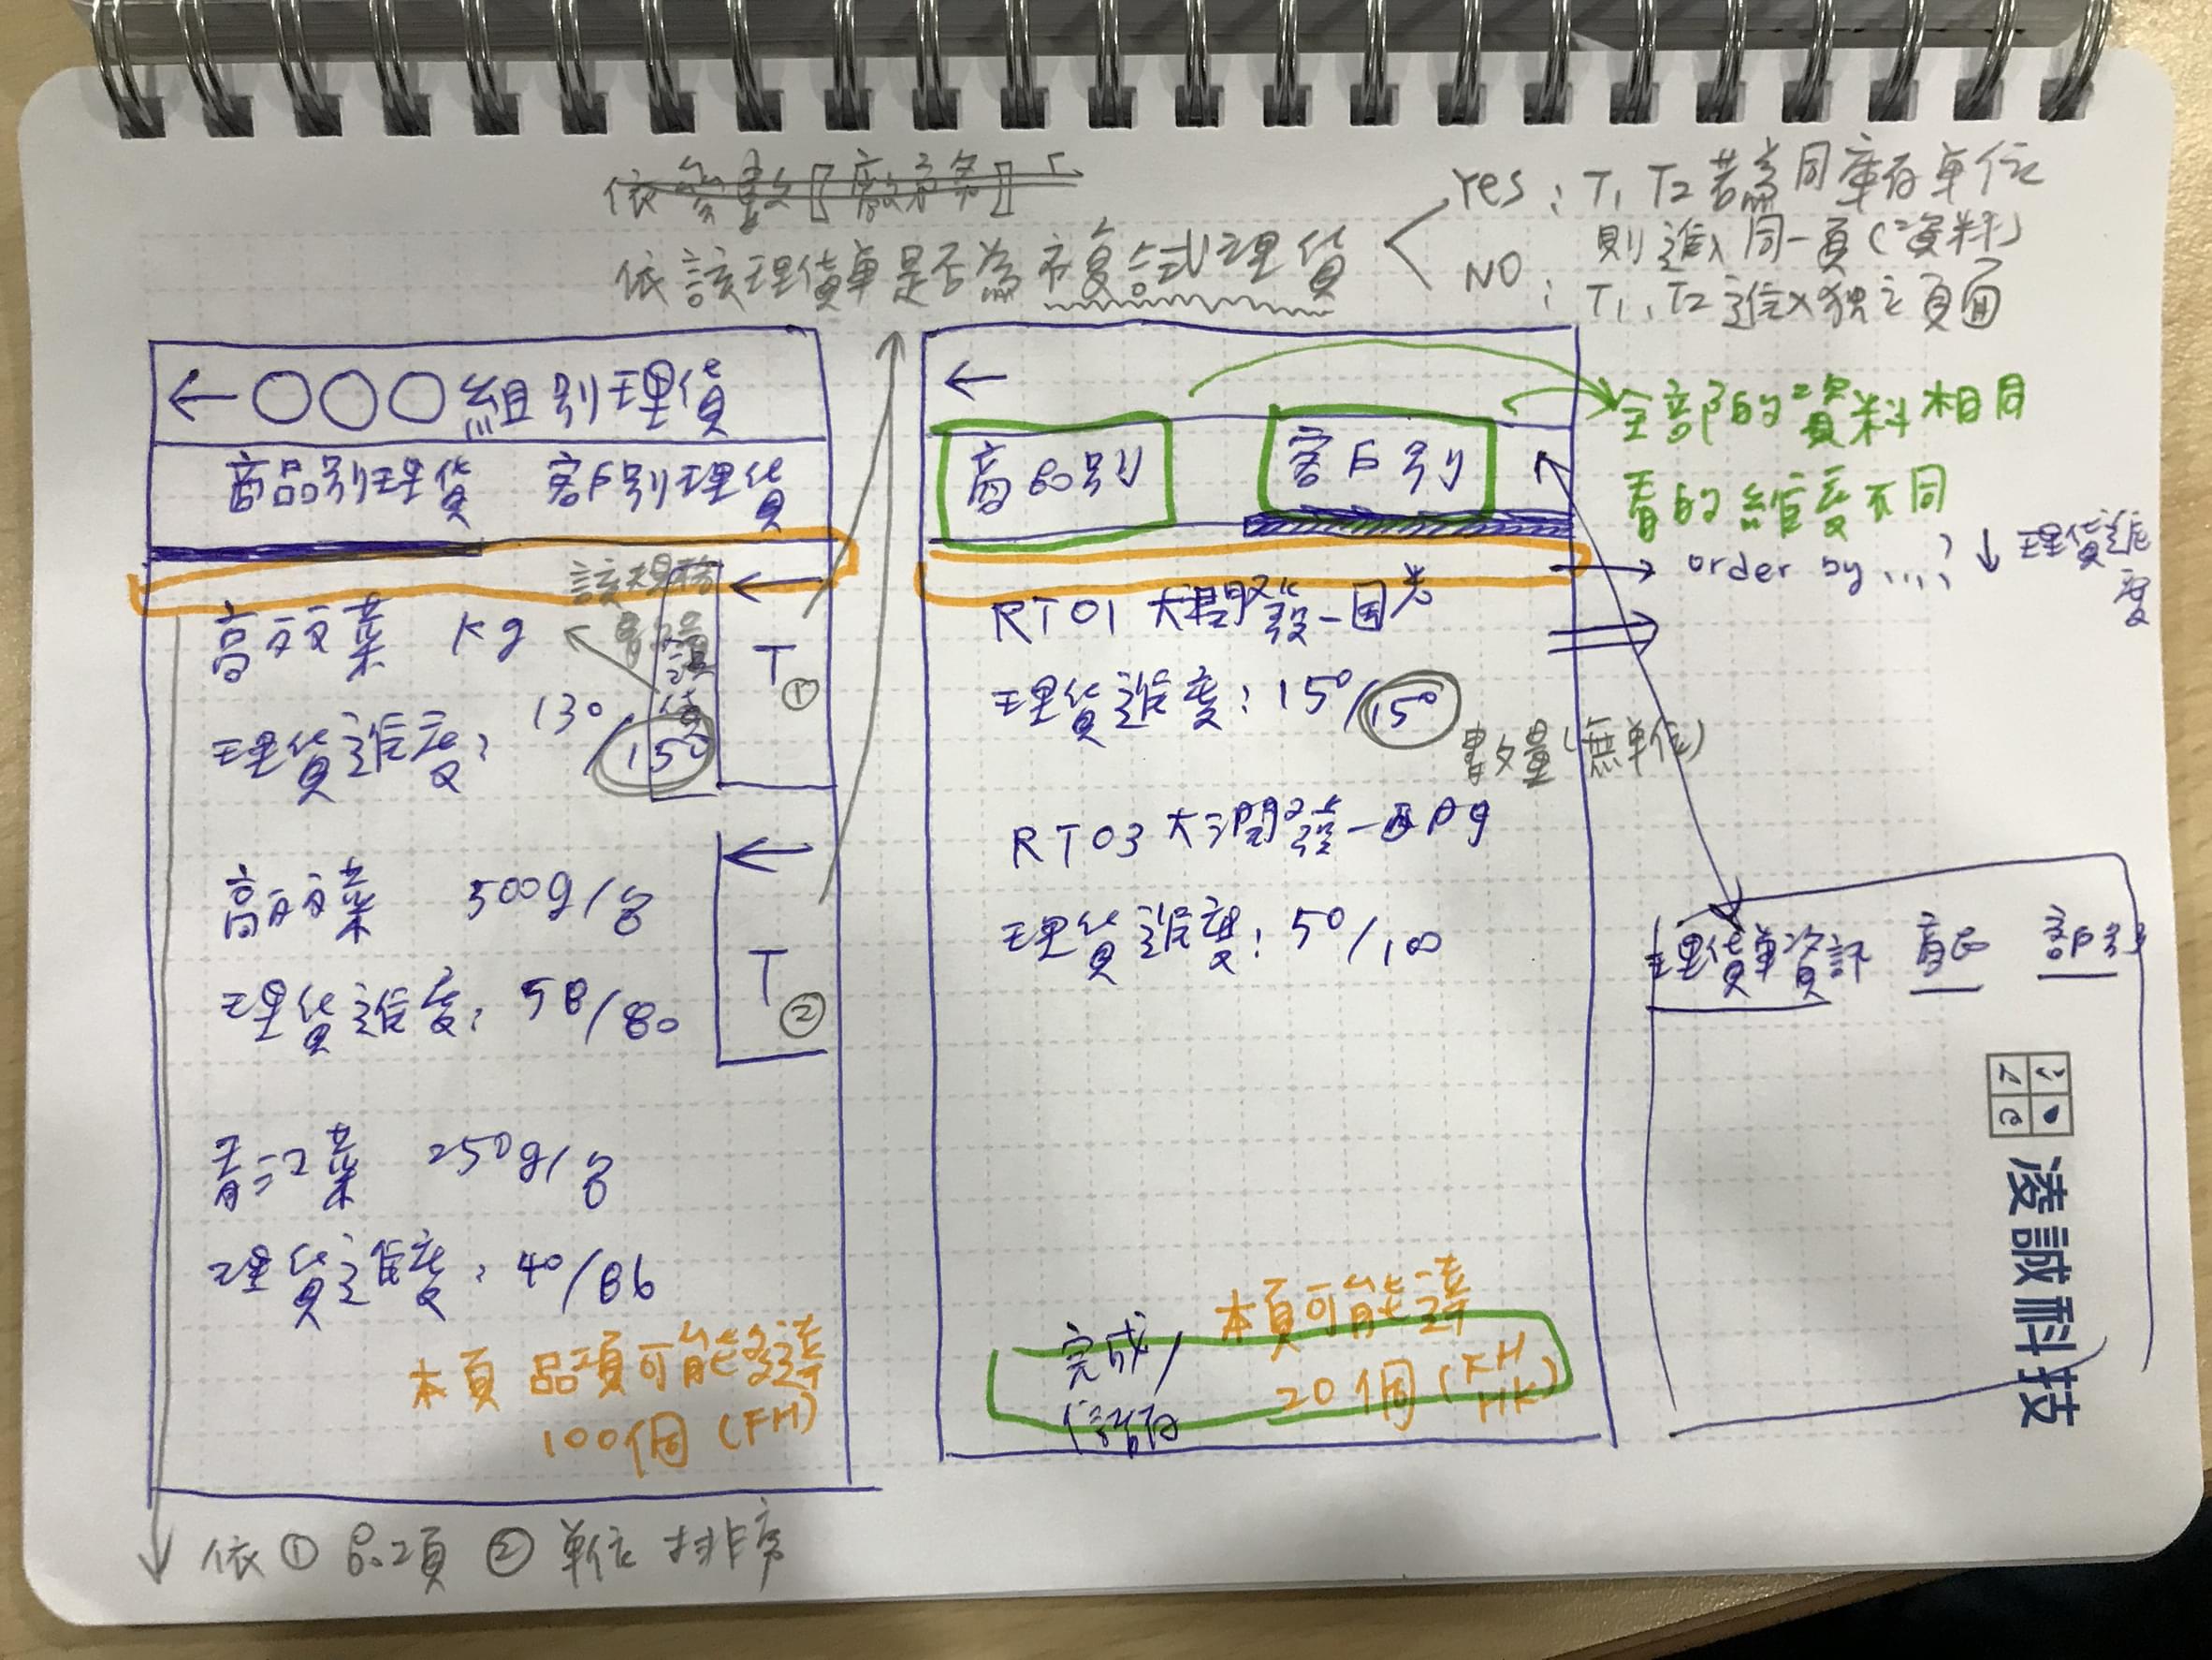 依該理貨單是否為複合式理貨
Yes: T1 T2 若為同庫存單位
則進入同一頁(資料)
NO: T1、T2 進入独立頁面
←○○○組別理貨
商品別理貨 客戶別理貨
該規格
數量
←
高丽菜 kg
T①
理貨進度: 130/150
高丽菜 500g/包
←
T②
理貨進度: 58/80
青江菜 250g/包
理貨進度: 40/86
本頁品項可能多達
100個(FH)
依①品項 ②單位 排序
←
商品別 客戶別
全部的資料相同
看的維度不同
order by ...? ↓ 理貨進
度
RT01 大潤發-
理貨進度: 150/150
數量(無單位)
RT03 大潤發-
理貨進度: 50/100
本頁可能達
20個(FH
HK)
完成/
儲存
理貨單資訊 商品 客戶別
凌誠科技